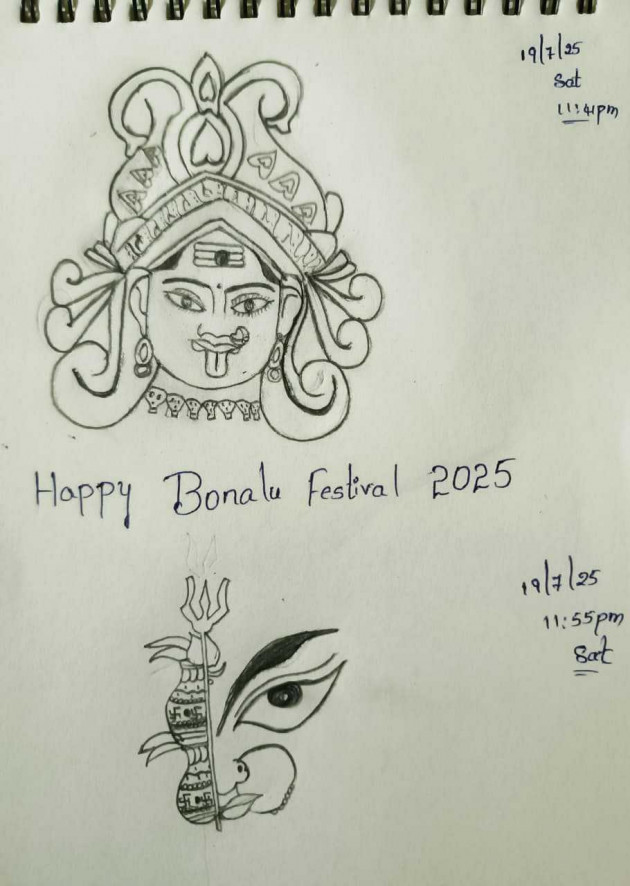 19/7/25
Sat
11:41pm
Happy Bonalu Festival 2025
19/7/25
11:55pm
Sat